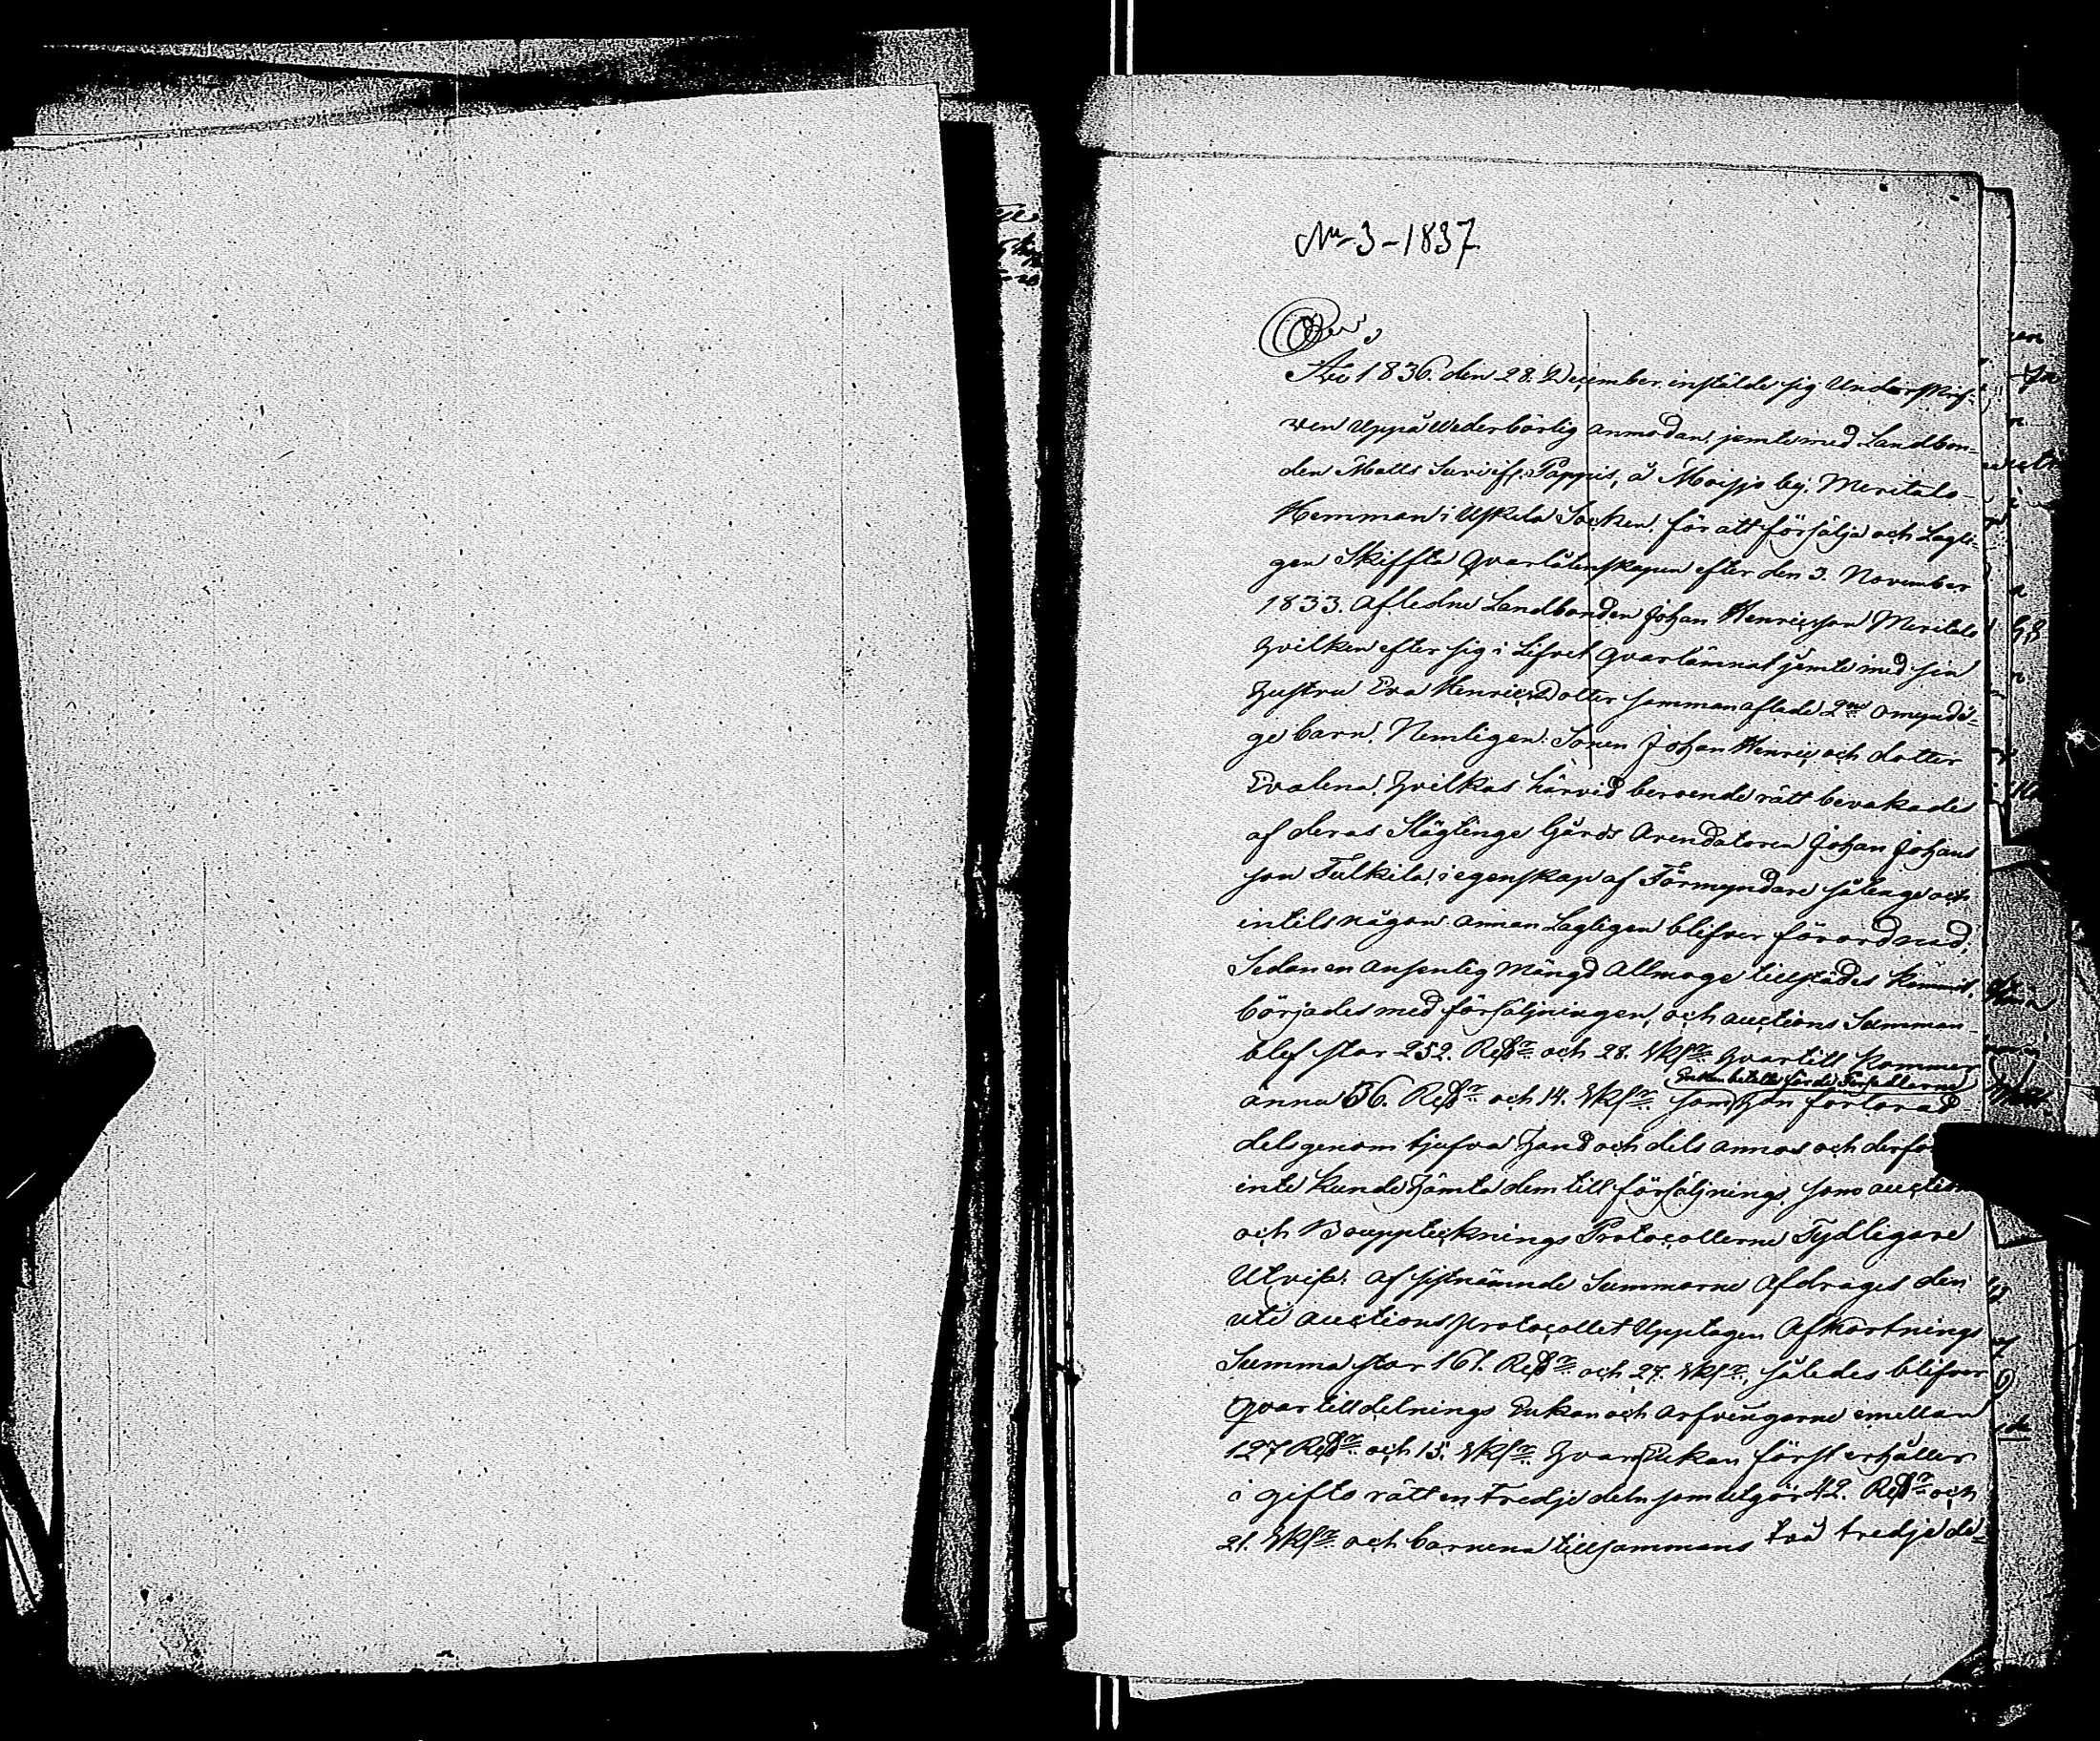 No 3-1837
År 1836. den 28. December, instälde sig Underskrif-
wen uppå wederbörlig anmodan, jemte med Landbon-
den Matts Pappis, å Moisjo by, Meritalo-
Hemman i Uskela Socken, för att försälja och Lagli-
gen Skiffta Qvarlåtenskapen efter den 3. November
1833. Aflidne Landbonden Johan Henricsson Meritalo
Hvilken efter sig i Lifvet qvarlämnat jemte med sin
Hustru Eva Henricsdotter sammanaflade 2ne omyndi-
ge barn, Nemligen: Sonen Johan Henric och dotter
Evalena, Hvilkas härvid beroende rätt bevakades
af deras Släglinge Gårds Arendatoren Johan Johans
son Tulkila, i egenskap af Förmyndare sålenge och
intils någon annan Lagligen blifver förordnad,
Sedan en ansenlig Mängd Allmoge tillstädes kommit,
börjades med försäljningen, och auctions Summan
blef stor 252. Rdr och 28. Skr. Hvartill kommer
Enkan betalte för de Försållerne
ännu 36. Rdr och 14. Skr. som Hon förlorad
dels genom tjufva Hand och dels annos och derför
inte kunde Hämta dem till försäljning, som auction
och Boupptecknings Protocollerne Tydligare
Utvisa. Af sistnämnde Summorne Afdrages den
uti auctions protocollet Upptagen Afkortnings
Summa stor 161. Rdr och 27. Skr, således blifver
Qvar till delnings Enkan och arfvingarne emellan
127 Rdr och 15. Skr. Hvaraf Enkan först erhåller
i gifto rätt en tredje deln som utgör 42. Rdr och
21. Skr. och barnena tillsammans två tredje de-